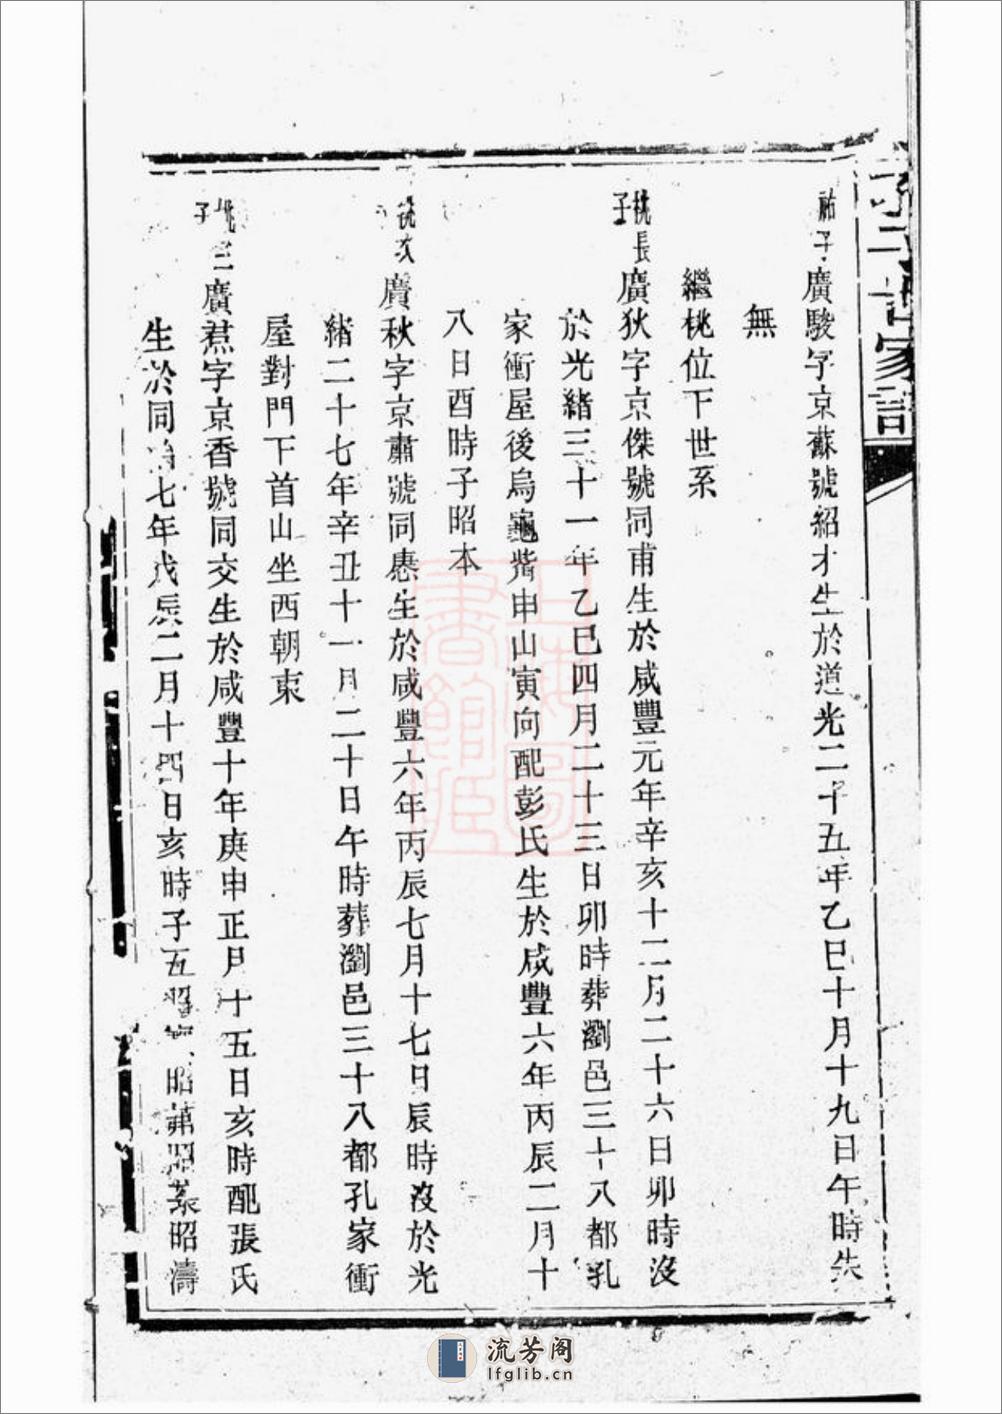 子廣駿字京蘇號紹才生於道光二十五年乙巳十月十九日午時失
無
繼桃位下世系
桃長子廣狄字京傑號同甫生於咸豐元年辛亥十二月二十六日卯時沒
於光緒三十一年乙巳四月二十三日卯時葬瀏邑三十八都孔
家衝屋後烏龜觜申山寅向配彭氏生於咸豐六年丙辰二月十
八日酉時子昭本
次廣秋字京肅號同懋生於咸豐六年丙辰七月十七日辰時沒於光
緒二十七年辛丑十一月二十日午時葬瀏邑三十八都孔家衝
屋對門下首山坐西朝東
桃三子廣焄字京香號同交生於咸豐十年庚申正月十五日亥時配張氏
生於同治七年戊辰二月十四日亥時子五昭 昭 昭 昭濤
家譜
上海圖書館藏
流芳阁
lfglib.cn